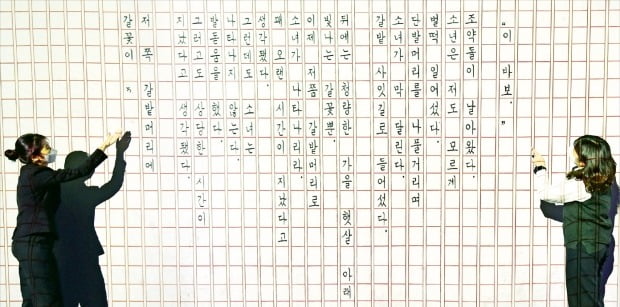 "이 바보."
조약돌이 날아왔다.
소년은 저도 모르게
벌떡 일어섰다.
단발머리를 나풀거리며
소녀가 막 달린다.
갈밭 사잇길로 들어섰다.
뒤에는 청량한 가을 햇살 아래
빛나는 갈꽃뿐.
이제 저쯤 갈밭머리로
소녀가 나타나리라.
꽤 오랜 시간이 지났다고
생각됐다.
그런데도 소녀는
나타나지 않는다.
발돋움을 했다.
그러고도 상당한 시간이
지났다고 생각됐다.
저 쪽 갈밭머리에
갈꽃이